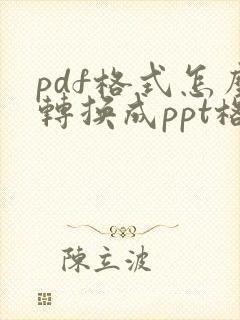 pdf格式怎
轉換成ppt
陳立波